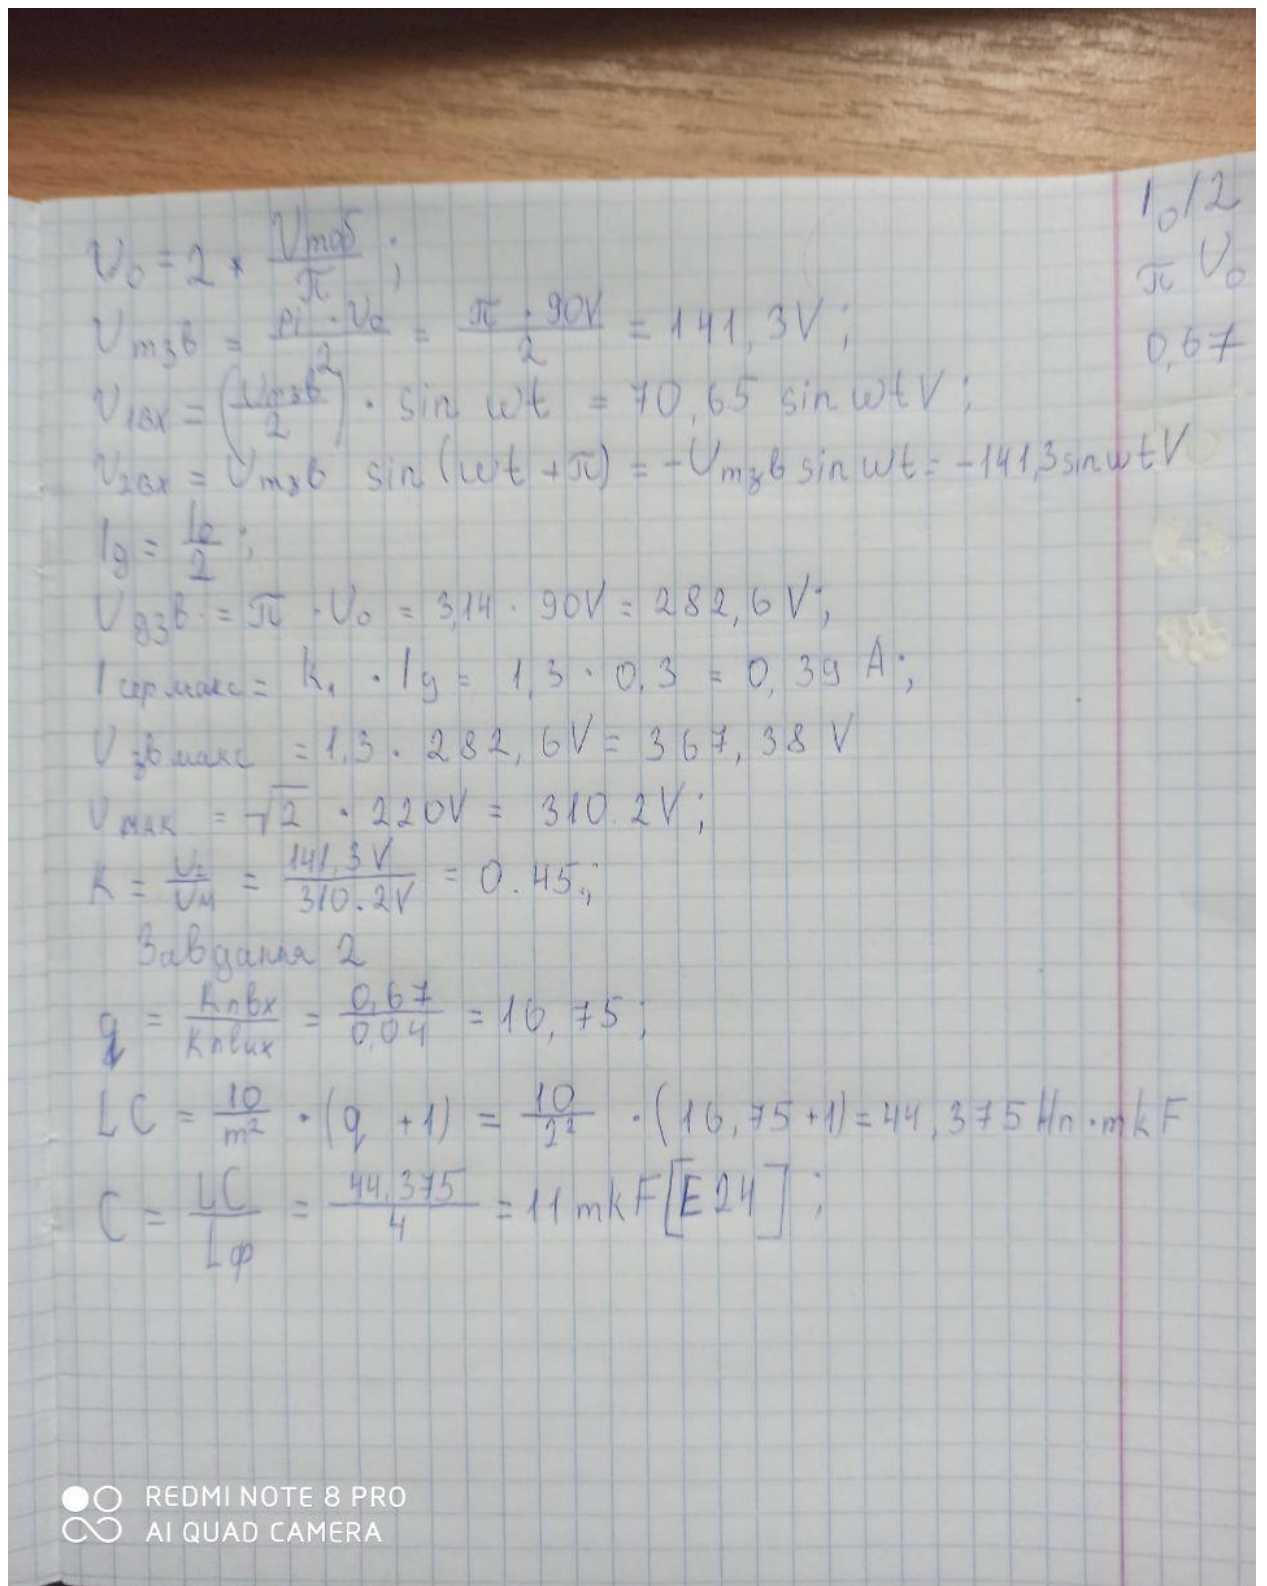 U₀ = 2 * Uтоб / π ;
I₀/2
Uтзв = pi · U₀ / 2 = π · 90V / 2 = 141,3V ;
π U₀
0,67
U1вх = (Uтзв / 2) · sin wt = 70,65 sin wt V ;
U2вх = Uтзв sin (wt + π) = - Uтзв sin wt = - 141,3 sin wt V
Ig = I₀ / 2 ;
Ugзв. = π · U₀ = 3,14 · 90V = 282,6 V ;
I сер макс = K₁ · Ig = 1,3 · 0,3 = 0,39 A ;
U зв макс = 1,3 · 282,6V = 367,38 V
U мак = √2 · 220V = 310.2V ;
K = U₂ / Uм = 141,3 V / 310.2V = 0.45 ;
Завдання 2
q = Kпвх / Kпвих = 0,67 / 0,04 = 16,75 ;
LC = 10 / m² · (q + 1) = 10 / 2² · (16,75 + 1) = 44,375 Hn · mkF
C = LC / Lф = 44,375 / 4 = 11 mkF [E24] ;
REDMI NOTE 8 PRO
AI QUAD CAMERA